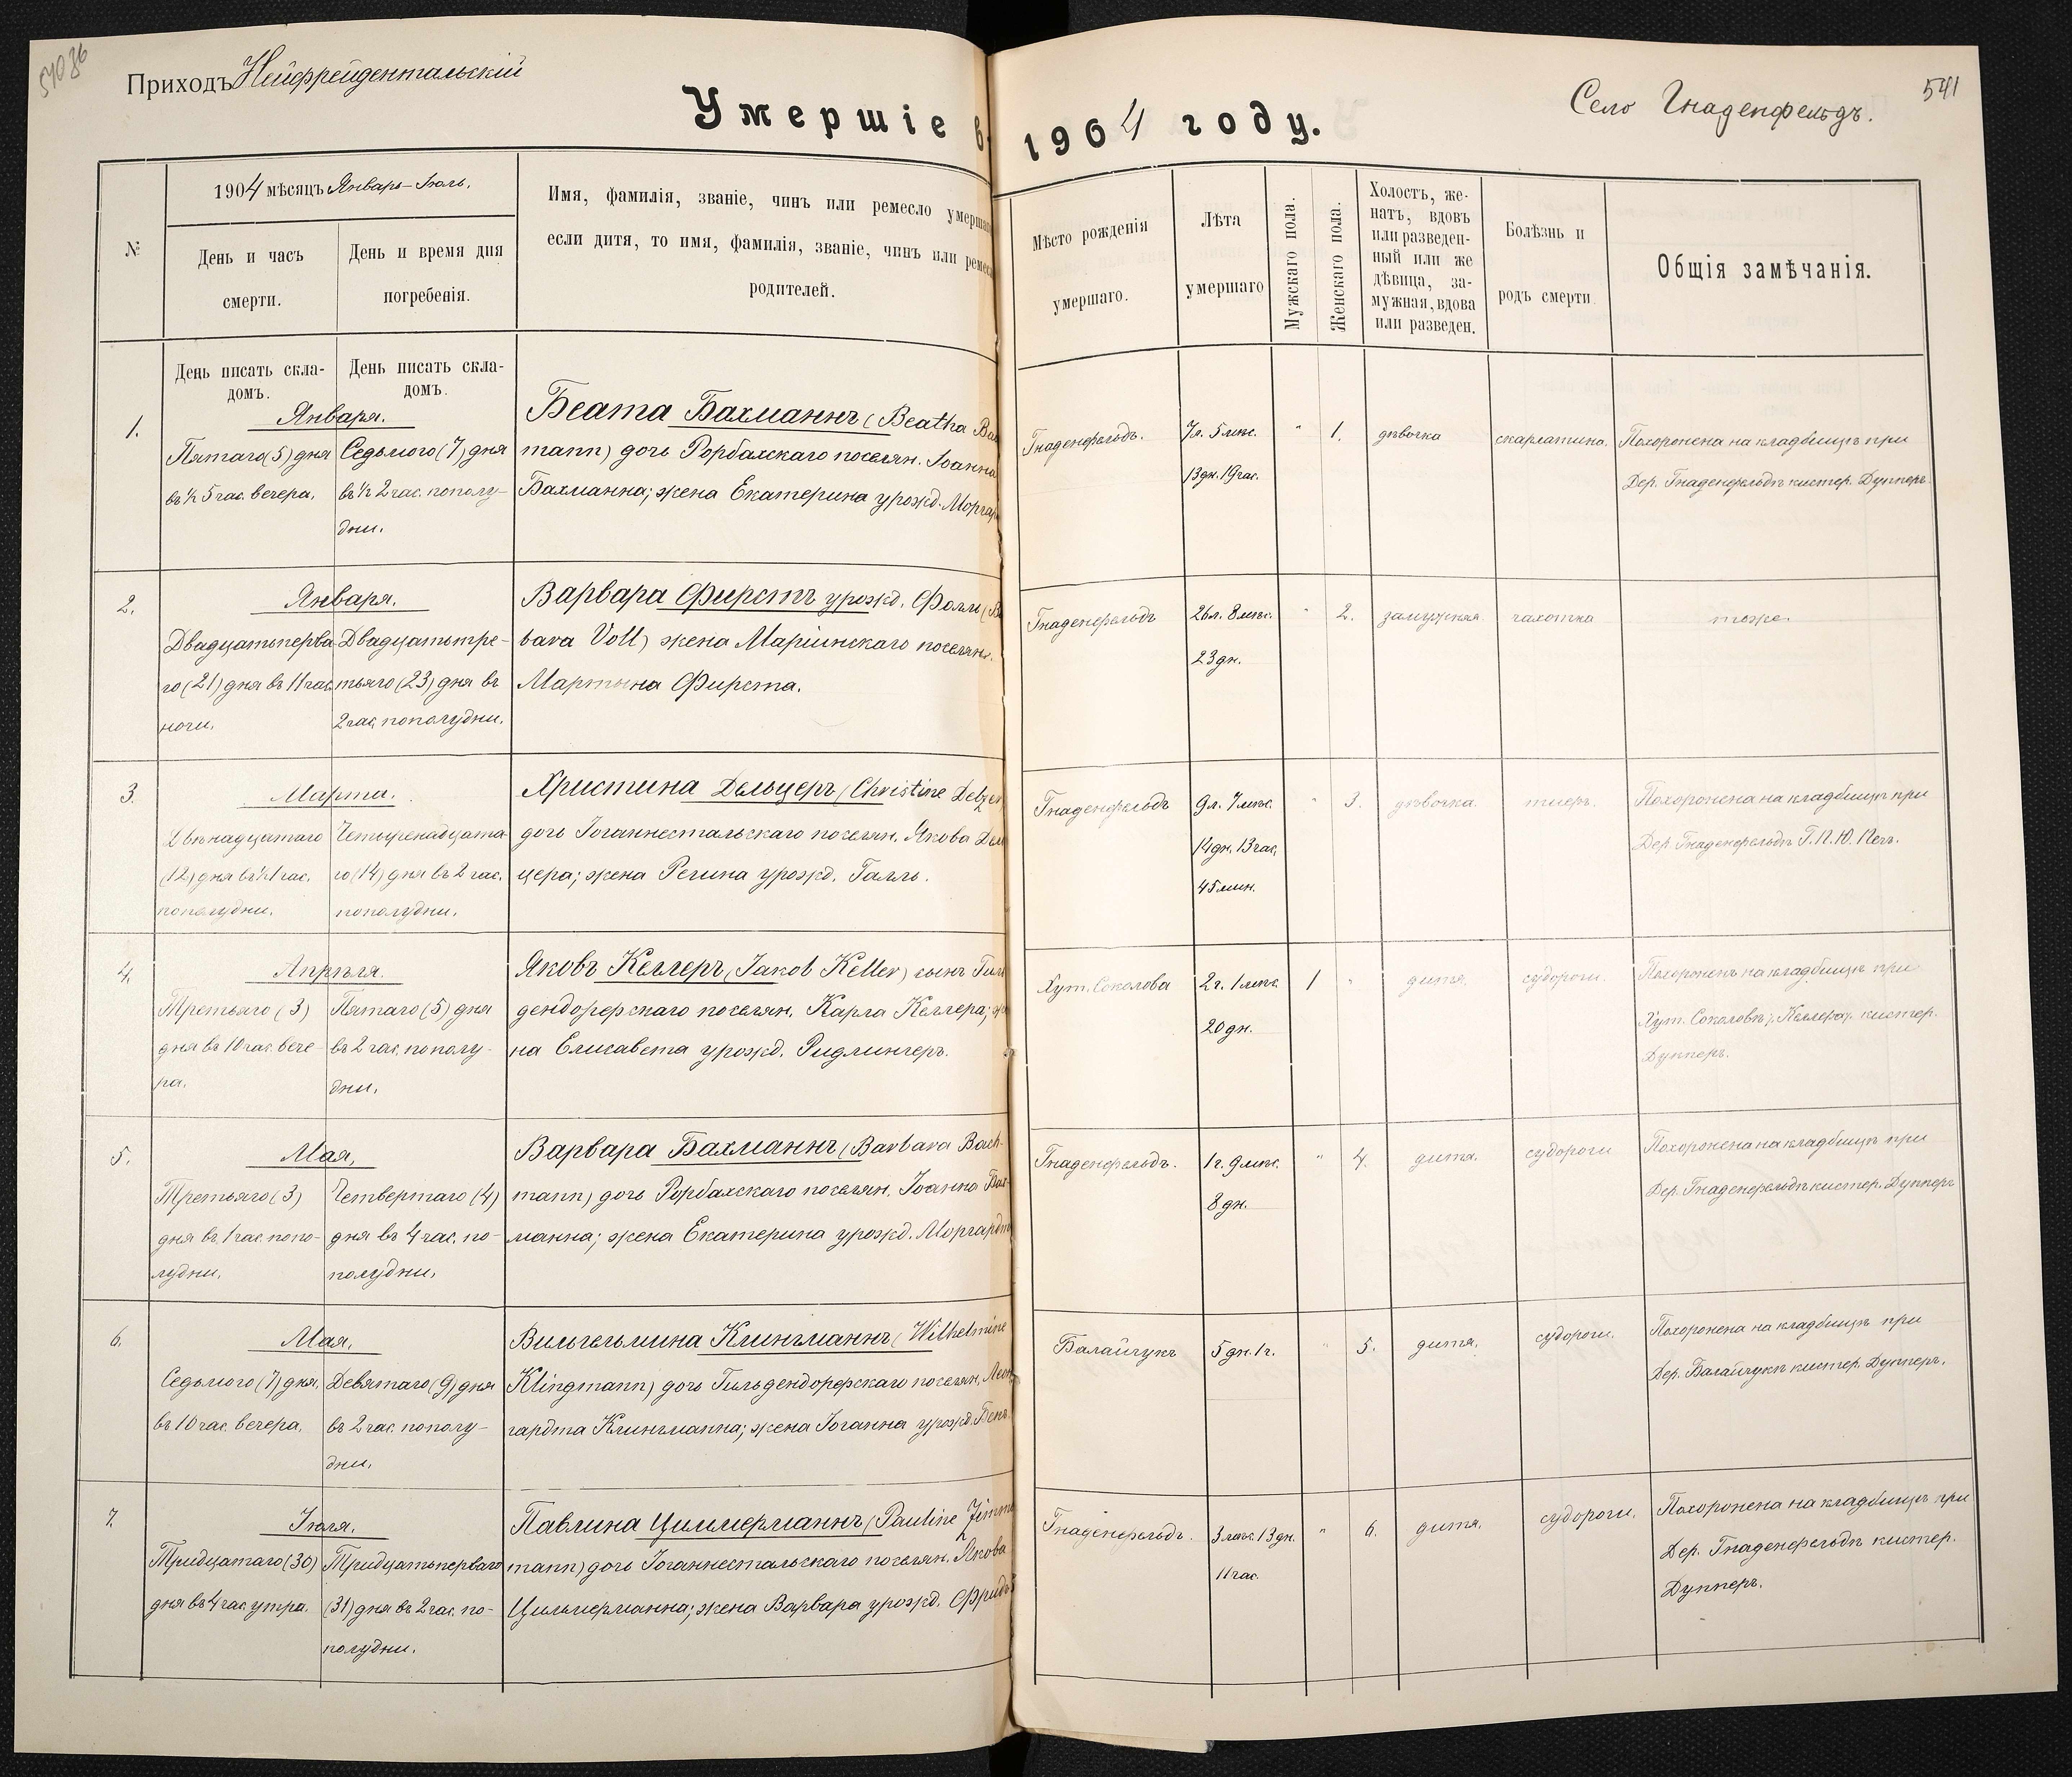 54036
Приходъ Нейфрейдентальскій
Умершіе въ
1904 году.
Село Гнаденфельдъ.
541
№
1904 мѣсяцъ Январь-Іюль.
День и часъ
смерти.
День и время дня
погребенія.
Имя, фамилія, званіе, чинъ или ремесло умершаго
если дитя, то имя, фамилія, званіе, чинъ или ремесло
родителей.
Мѣсто рожденія
умершаго.
Лѣта
умершаго
Мужскаго пола.
Женскаго пола.
Холостъ, же-
натъ, вдовъ
или разведен-
ный или же
дѣвица, за-
мужная, вдова
или разведен.
Болѣзнь и
родъ смерти.
Общія замѣчанія.
День писать скла-
домъ.
День писать скла-
домъ.
1.
Января.
Пятаго (5) дня
въ ½ 5 час. вечера.
Седьмого (7) дня
въ ½ 2 час. пополу-
дни.
Беата Бахманнъ (Beatha
mann) дочь Рорбахскаго поселян. Іоанна
Бахманна; жена Екатерина урожд.
Гнаденфельдъ.
7л. 5 мѣс.
13 дн. 19 час.
"
1.
дѣвочка
скарлатина.
Похоронена на кладбищѣ при
Дер. Гнаденфельдъ кистер. Дупперъ.
2.
Января.
Двадцатьперва-
го (21) дня въ 11 час.
ночи.
Двадцатьтре-
тьяго (23) дня въ
2 час. пополудни.
Варвара Фирстъ урожд. Фолль
bara Voll) жена Маріинскаго поселян.
Мартына Фирста.
Гнаденфельдъ
26л. 8 мѣс.
23 дн.
"
2.
замужная.
чахотка
тоже.
3.
Марта.
Двѣнадцатаго
(12) дня въ ½ 1 час.
пополудни.
Четырнадцата-
го (14) дня въ 2 час.
пополудни.
Христина Дельцеръ (Christine Delzer
дочь Іоганнестальскаго поселян. Якова Дель
цера; жена Регина урожд. Галль.
Гнаденфельдъ
9л. 7 мѣс.
14 дн. 13 час.
45 мин.
"
3.
дѣвочка.
тифъ.
Похоронена на кладбищѣ при
Дер. Гнаденфельдъ Г. П. Ю. Печъ.
4.
Апрѣля.
Третьяго (3)
дня въ 10 час. вече-
ра.
Пятаго (5) дня
въ 2 час. пополу-
дни.
Яковъ Келлеръ (Jakob Keller) сынъ Гиль
дендорфскаго поселян. Карла Келлера; же
на Елисавета урожд. Ридлингеръ.
Хут. Соколова
2 г. 1 мѣс.
20 дн.
1
"
дитя.
судороги.
Похоронен на кладбищѣ при
Хут. Соколовъ /: Келлера:/. кистер.
Дупперъ.
5.
Мая.
Третьяго (3)
дня въ 1 час. попо-
лудни.
Четвертаго (4)
дня въ 4 час. по-
полудни.
Варвара Бахманнъ (Barbara Bach-
mann) дочь Рорбахскаго поселян. Іоанна Бах-
манна; жена Екатерина урожд. Моргардтъ
Гнаденфельдъ.
1 г. 9 мѣс.
8 дн.
"
4.
дитя.
судороги
Похоронена на кладбищѣ при
Дер. Гнаденфельдъ кистер. Дупперъ
6.
Мая.
Седьмого (7) дня,
въ 10 час. вечера.
Девятаго (9) дня
въ 2 час. пополу-
дни.
Вильгельмина Клингманнъ (Wilhelmine
Klingmann) дочь Гильдендорфскаго поселян. Леон
гардта Клингманна; жена Іоганна урожд.
Балайчукъ
5 дн. 1 ч.
"
5.
дитя.
судороги.
Похоронена на кладбищѣ при
Дер. Балайчукъ кистер. Дупперъ.
7.
Іюля.
Тридцатаго (30)
дня въ 4 час. утра.
Тридцатьперваго
(31) дня въ 2 час. по-
полудни.
Павлина Циммерманнъ (Pauline Zimmer
mann) дочь Іоганнестальскаго поселян. Якова
Циммерманна; жена Варвара урожд.
Гнаденфельдъ.
3 мѣс. 13 дн.
11 час.
"
6.
дитя.
судороги.
Похоронена на кладбищѣ при
Дер. Гнаденфельдъ кистер.
Дупперъ.